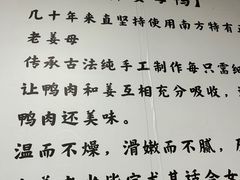 几十年来直坚持使用南方特有
老姜母
传承古法纯手工制作每只需
让鸭肉和姜互相充分吸收，
鸭肉还美味。
温而不燥，滑嫩而不腻，